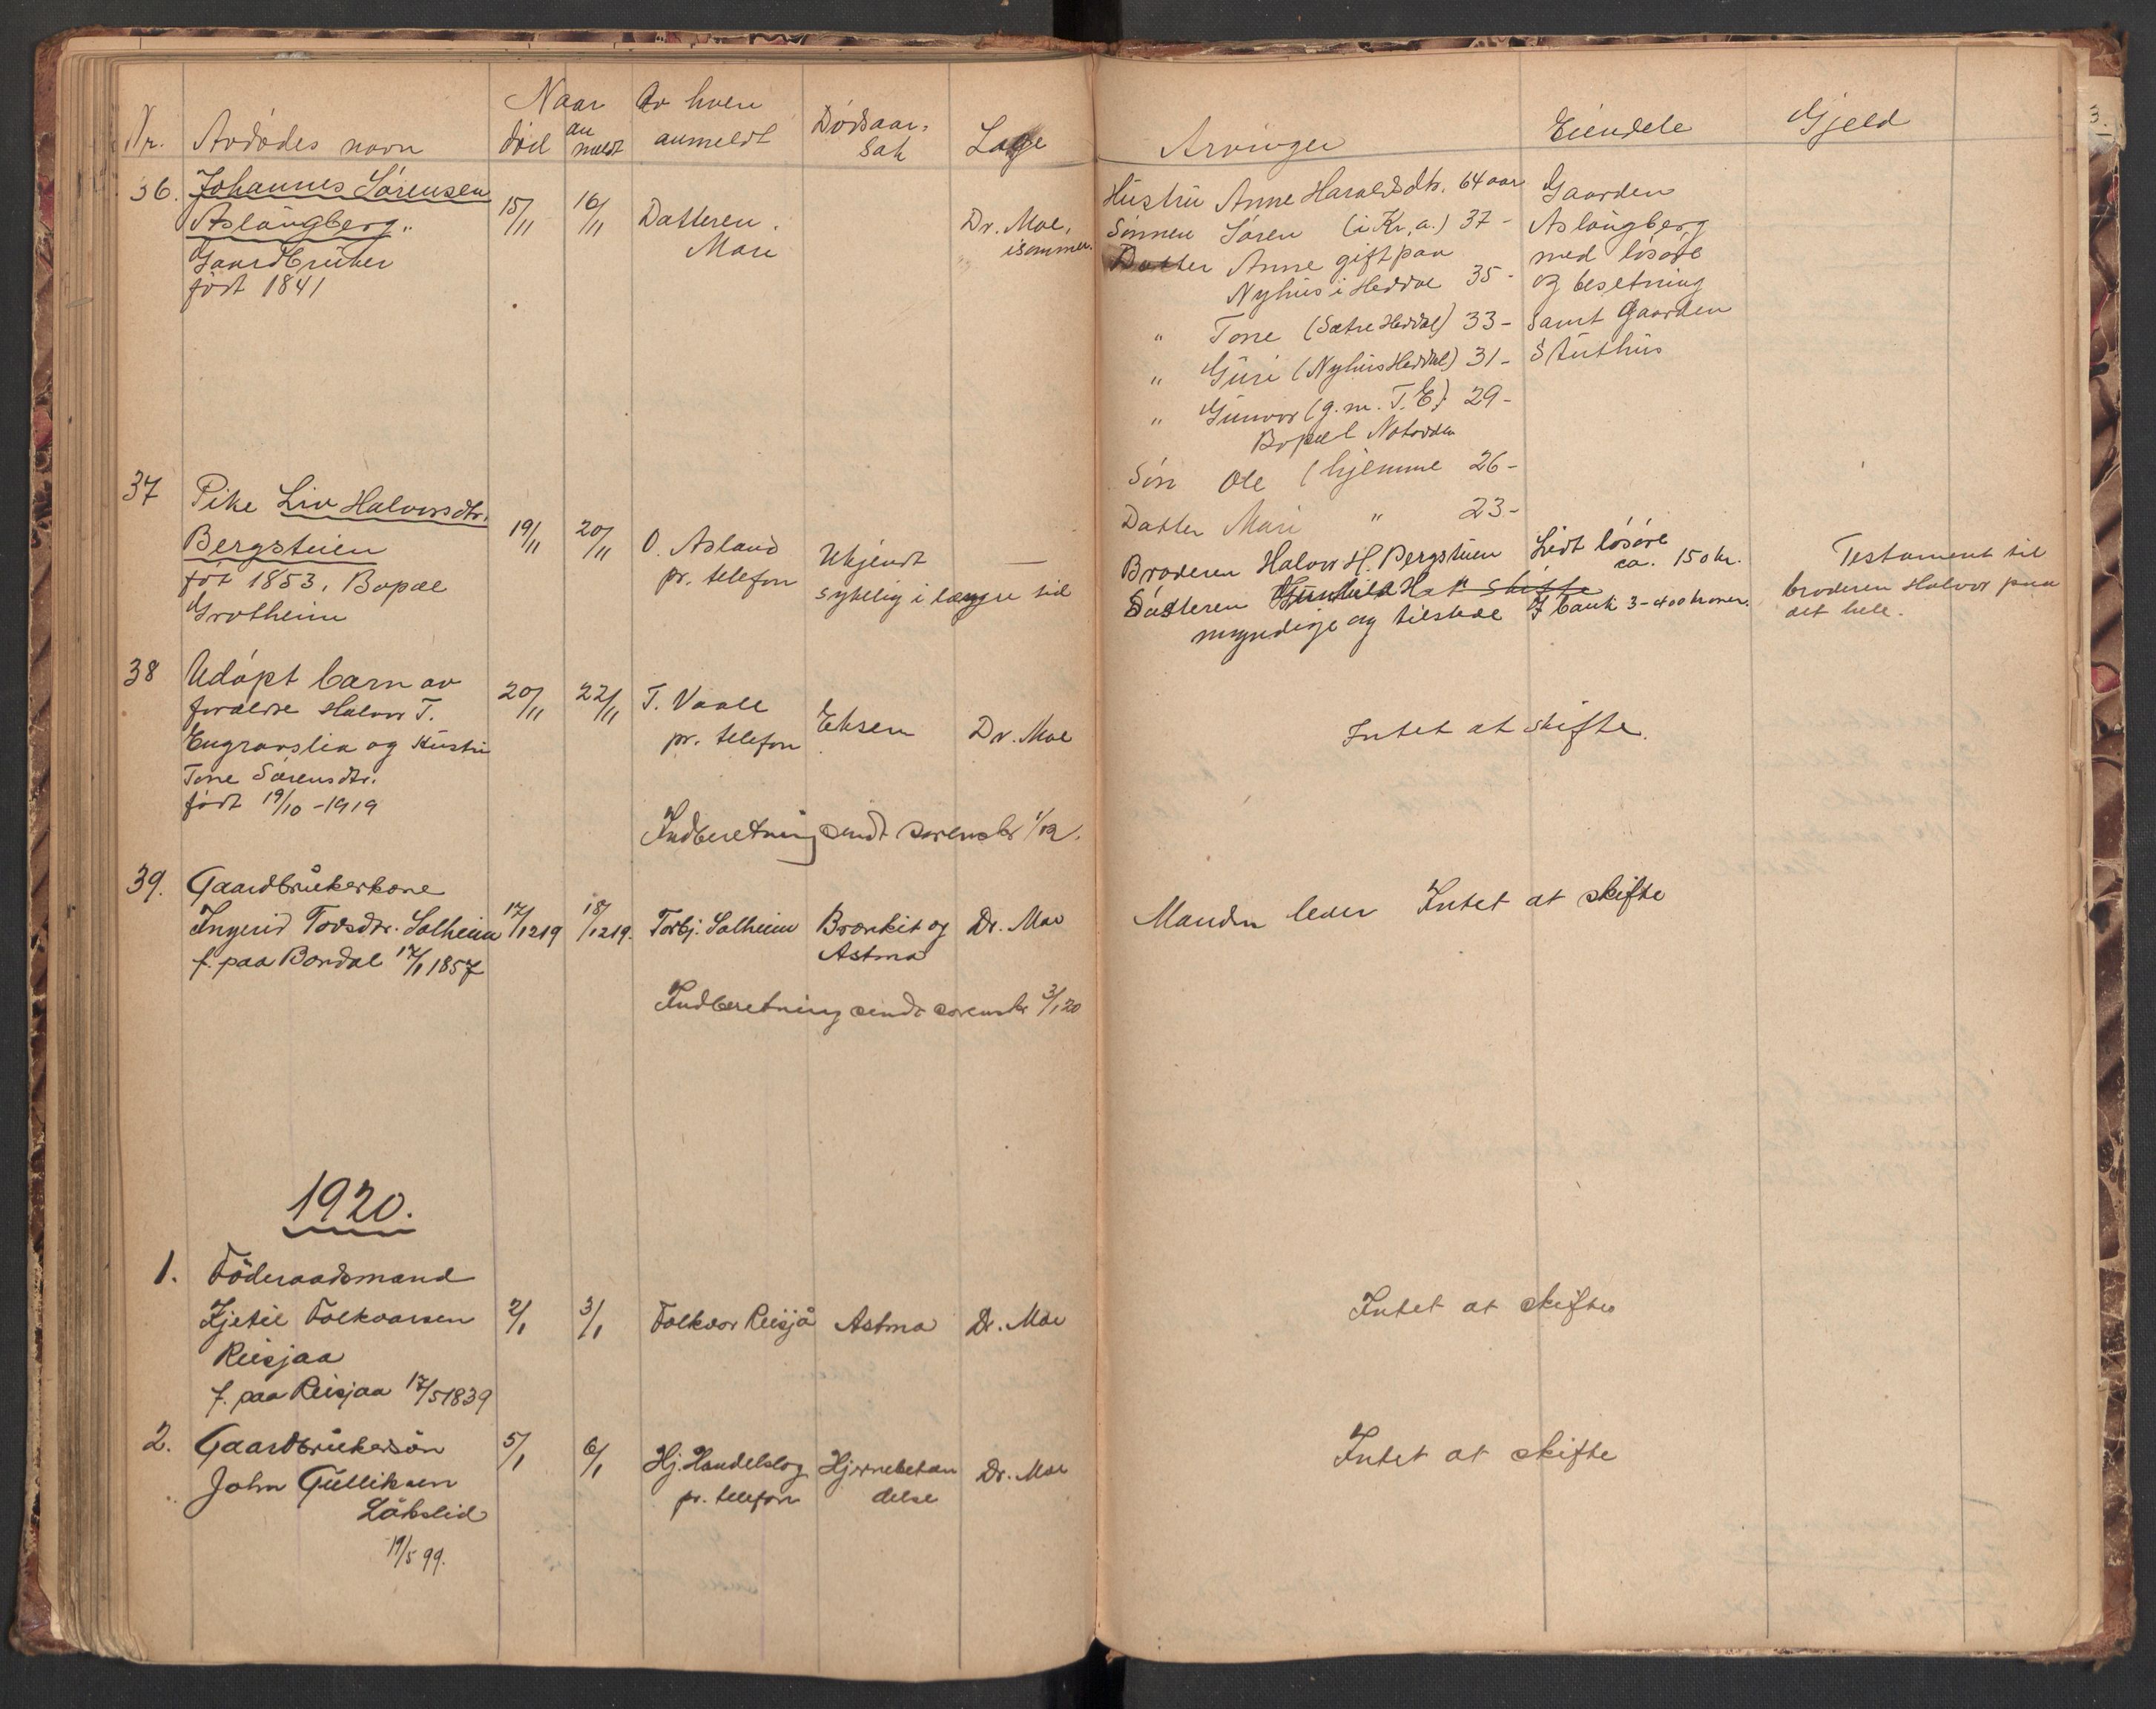 Nr. Avdødes navn Naar död an meldt Av hvem anmeldt Dødsaarsak Læge
36. Johannes Sørensen 15/11 16/11 Datteren Dr. Moe,
Aslangberg Mari isommer.
Gaardbruker
født 1841
37 Pike Liv Halvorsdtr.
Bergstuien 19/11 20/11 O. Asland Ukjendt —
født 1853. Bopæl pr. telefon sykelig i længre tid
Grotheim
38 Udøpt barn av 20/11 22/11 T. Vaale Eksem Dr. Moe
forældre Halvor T. pr. telefon
Engravslia og hustru
Tone Sørensdtr.
født 19/10 - 1919
Indberetning sendt sorenskr 1/12.
39. Gaardbrukerkone
Ingerid Tovsdtr. Solheim 17/12 19 18/12 19. Torbj. Solheim Bronkit og Dr. Moe
f. paa Bondal 17/1 1857 Astma
Indberetning sendt sorenskr 3/1 20
1920.
1. Föderaadsmand
Kjetil Folkvarsen 2/1 3/1 Folkvor Reisjå Astma Dr. Moe
Reisjaa
f. paa Reisjaa 17/5 1839
2. Gaardbrukersön 5/1 6/1 Hj. Handelslag Hjernebetæn Dr. Moe
John Gulliksen pr. telefon delse
Løkslid
19/5 99.
Arvinger Eiendele Gjeld
Hustru Anne Haraldsdtr. 64 aar Gaarden
Sønnen Søren (i Kr.a.) 37 - Aslangberg
Datter Anne gift paa med løsøre
Nyhus i Heddal 35 - og besetning
" Tone (Sætre Heddal) 33 - samt Gaarden
" Guri (Nyhus Heddal) 31 - Stuthus
" Gunvor (g.m. T.E.) 29 -
Bopæl Notodden
Søn Ole (hjemme 26 -
Datter Mari " 23 -
Broderen Halvor H. Bergstuien Lidt løsøre ca. 150 kr. Testament til
Søsteren Gunhild H. I bank 3-400 kroner. broderen Halvor paa
myndige og tilstede det hele.
Intet at skifte.
Manden lever Intet at skifte
Intet at skifte
Intet at skifte